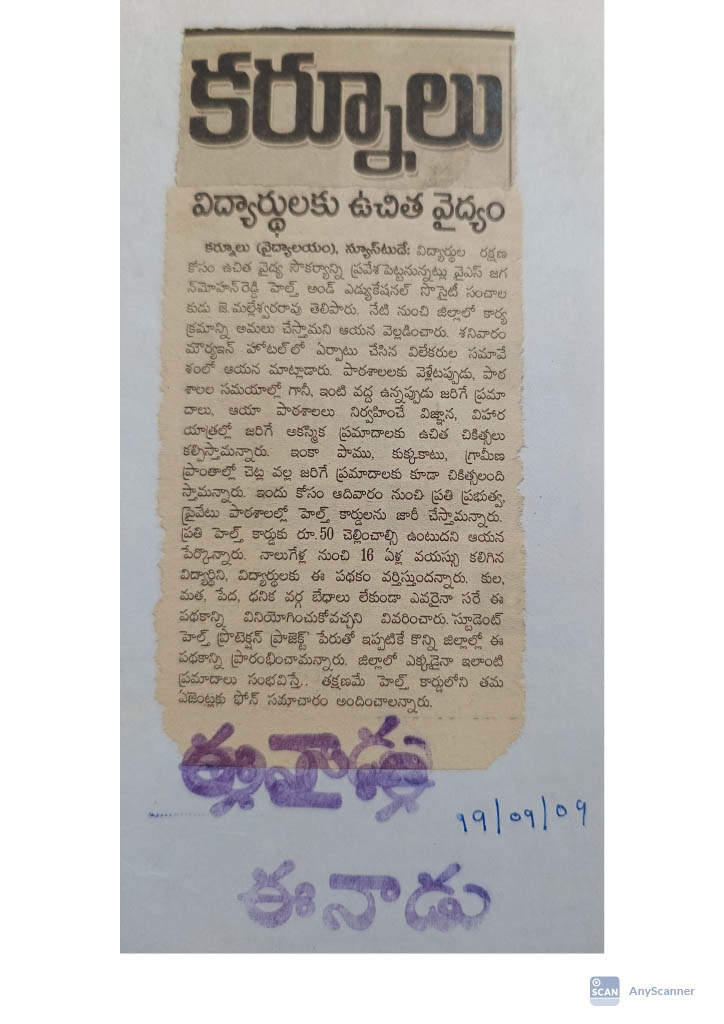 కర్నూలు
విద్యార్థులకు ఉచిత వైద్యం
కర్నూలు (వైద్యాలయం), న్యూస్‌టుడే: విద్యార్థుల రక్షణ
కోసం ఉచిత వైద్య సౌకర్యాన్ని ప్రవేశపెట్టనున్నట్లు వైఎస్ జగ
న్‌మోహన్‌రెడ్డి హెల్త్ అండ్ ఎడ్యుకేషనల్ సొసైటీ సంచాల
కుడు జె.మల్లేశ్వరరావు తెలిపారు. నేటి నుంచి జిల్లాలో కార్య
క్రమాన్ని అమలు చేస్తామని ఆయన వెల్లడించారు. శనివారం
మౌర్యఇన్ హోటల్‌లో ఏర్పాటు చేసిన విలేకరుల సమావే
శంలో ఆయన మాట్లాడారు. పాఠశాలలకు వెళ్లేటప్పుడు, పాఠ
శాలల సమయాల్లో గానీ, ఇంటి వద్ద ఉన్నప్పుడు జరిగే ప్రమా
దాలు, ఆయా పాఠశాలలు నిర్వహించే విజ్ఞాన, విహార
యాత్రల్లో జరిగే ఆకస్మిక ప్రమాదాలకు ఉచిత చికిత్సలు
కల్పిస్తామన్నారు. ఇంకా పాము, కుక్కకాటు, గ్రామీణ
ప్రాంతాల్లో చెట్ల వల్ల జరిగే ప్రమాదాలకు కూడా చికిత్సలంది
స్తామన్నారు. ఇందు కోసం ఆదివారం నుంచి ప్రతి ప్రభుత్వ,
ప్రైవేటు పాఠశాలల్లో హెల్త్ కార్డులను జారీ చేస్తామన్నారు.
ప్రతి హెల్త్ కార్డుకు రూ.50 చెల్లించాల్సి ఉంటుదని ఆయన
పేర్కొన్నారు. నాలుగేళ్ల నుంచి 16 ఏళ్ల వయస్సు కలిగిన
విద్యార్థిని, విద్యార్థులకు ఈ పథకం వర్తిస్తుందన్నారు. కుల,
మత, పేద, ధనిక వర్గ బేధాలు లేకుండా ఎవరైనా సరే ఈ
పథకాన్ని వినియోగించుకోవచ్చని వివరించారు. 'స్టూడెంట్
హెల్త్ ప్రొటెక్షన్ ప్రాజెక్ట్' పేరుతో ఇప్పటికే కొన్ని జిల్లాల్లో ఈ
పథకాన్ని ప్రారంభించామన్నారు. జిల్లాలో ఎక్కడైనా ఇలాంటి
ప్రమాదాలు సంభవిస్తే.. తక్షణమే హెల్త్ కార్డులోని తమ
ఏజెంట్లకు ఫోన్ సమాచారం అందించాలన్నారు.
ఈనాడు
19/09/09
ఈనాడు
SCAN AnyScanner